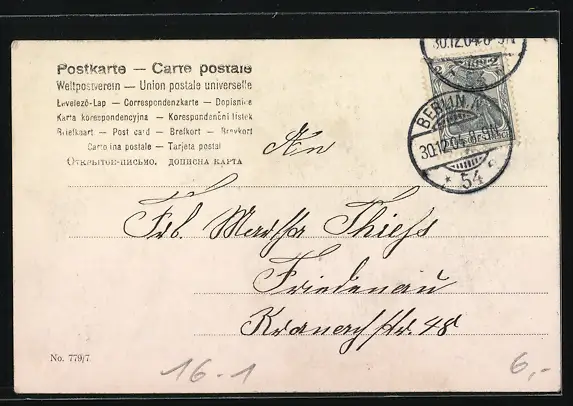 30.12.04 8-9N
Postkarte — Carte postale
Weltpostverein — Union postale universelle
Levelező-Lap — Correspondenzkarte — Dopisnice
Karta korespondencyjna — Korespondenční listek
Briefkaart — Post card — Brefkort — Brevkort
Cartolina postale — Tarjeta postal
Открытое-письмо. дописна карта
2 2
BERLIN, N
30.12.04 8-9N
* 54
An
Frl. Thiess
Friedenau
Kranachstr. 48
No. 779/7
16-1
6,-